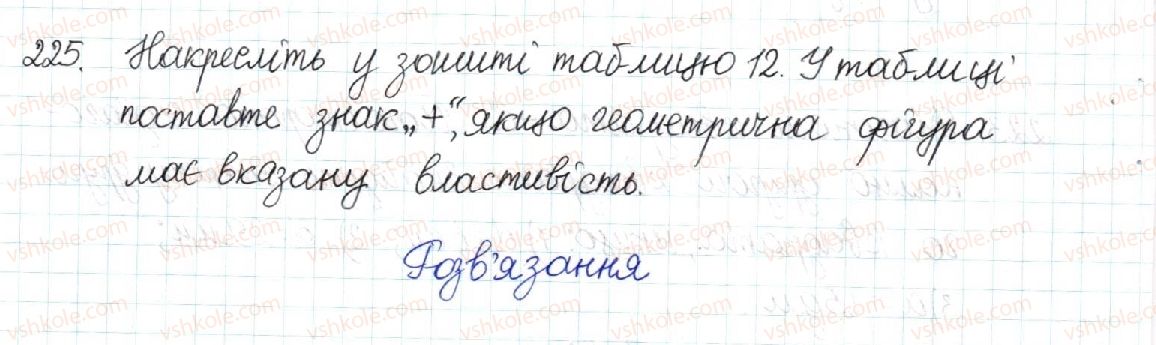 225. Накресліть у зошиті таблицю 12. У таблиці
поставте знак „+“, якщо геометрична фігура
має вказану властивість.
Розв'язання